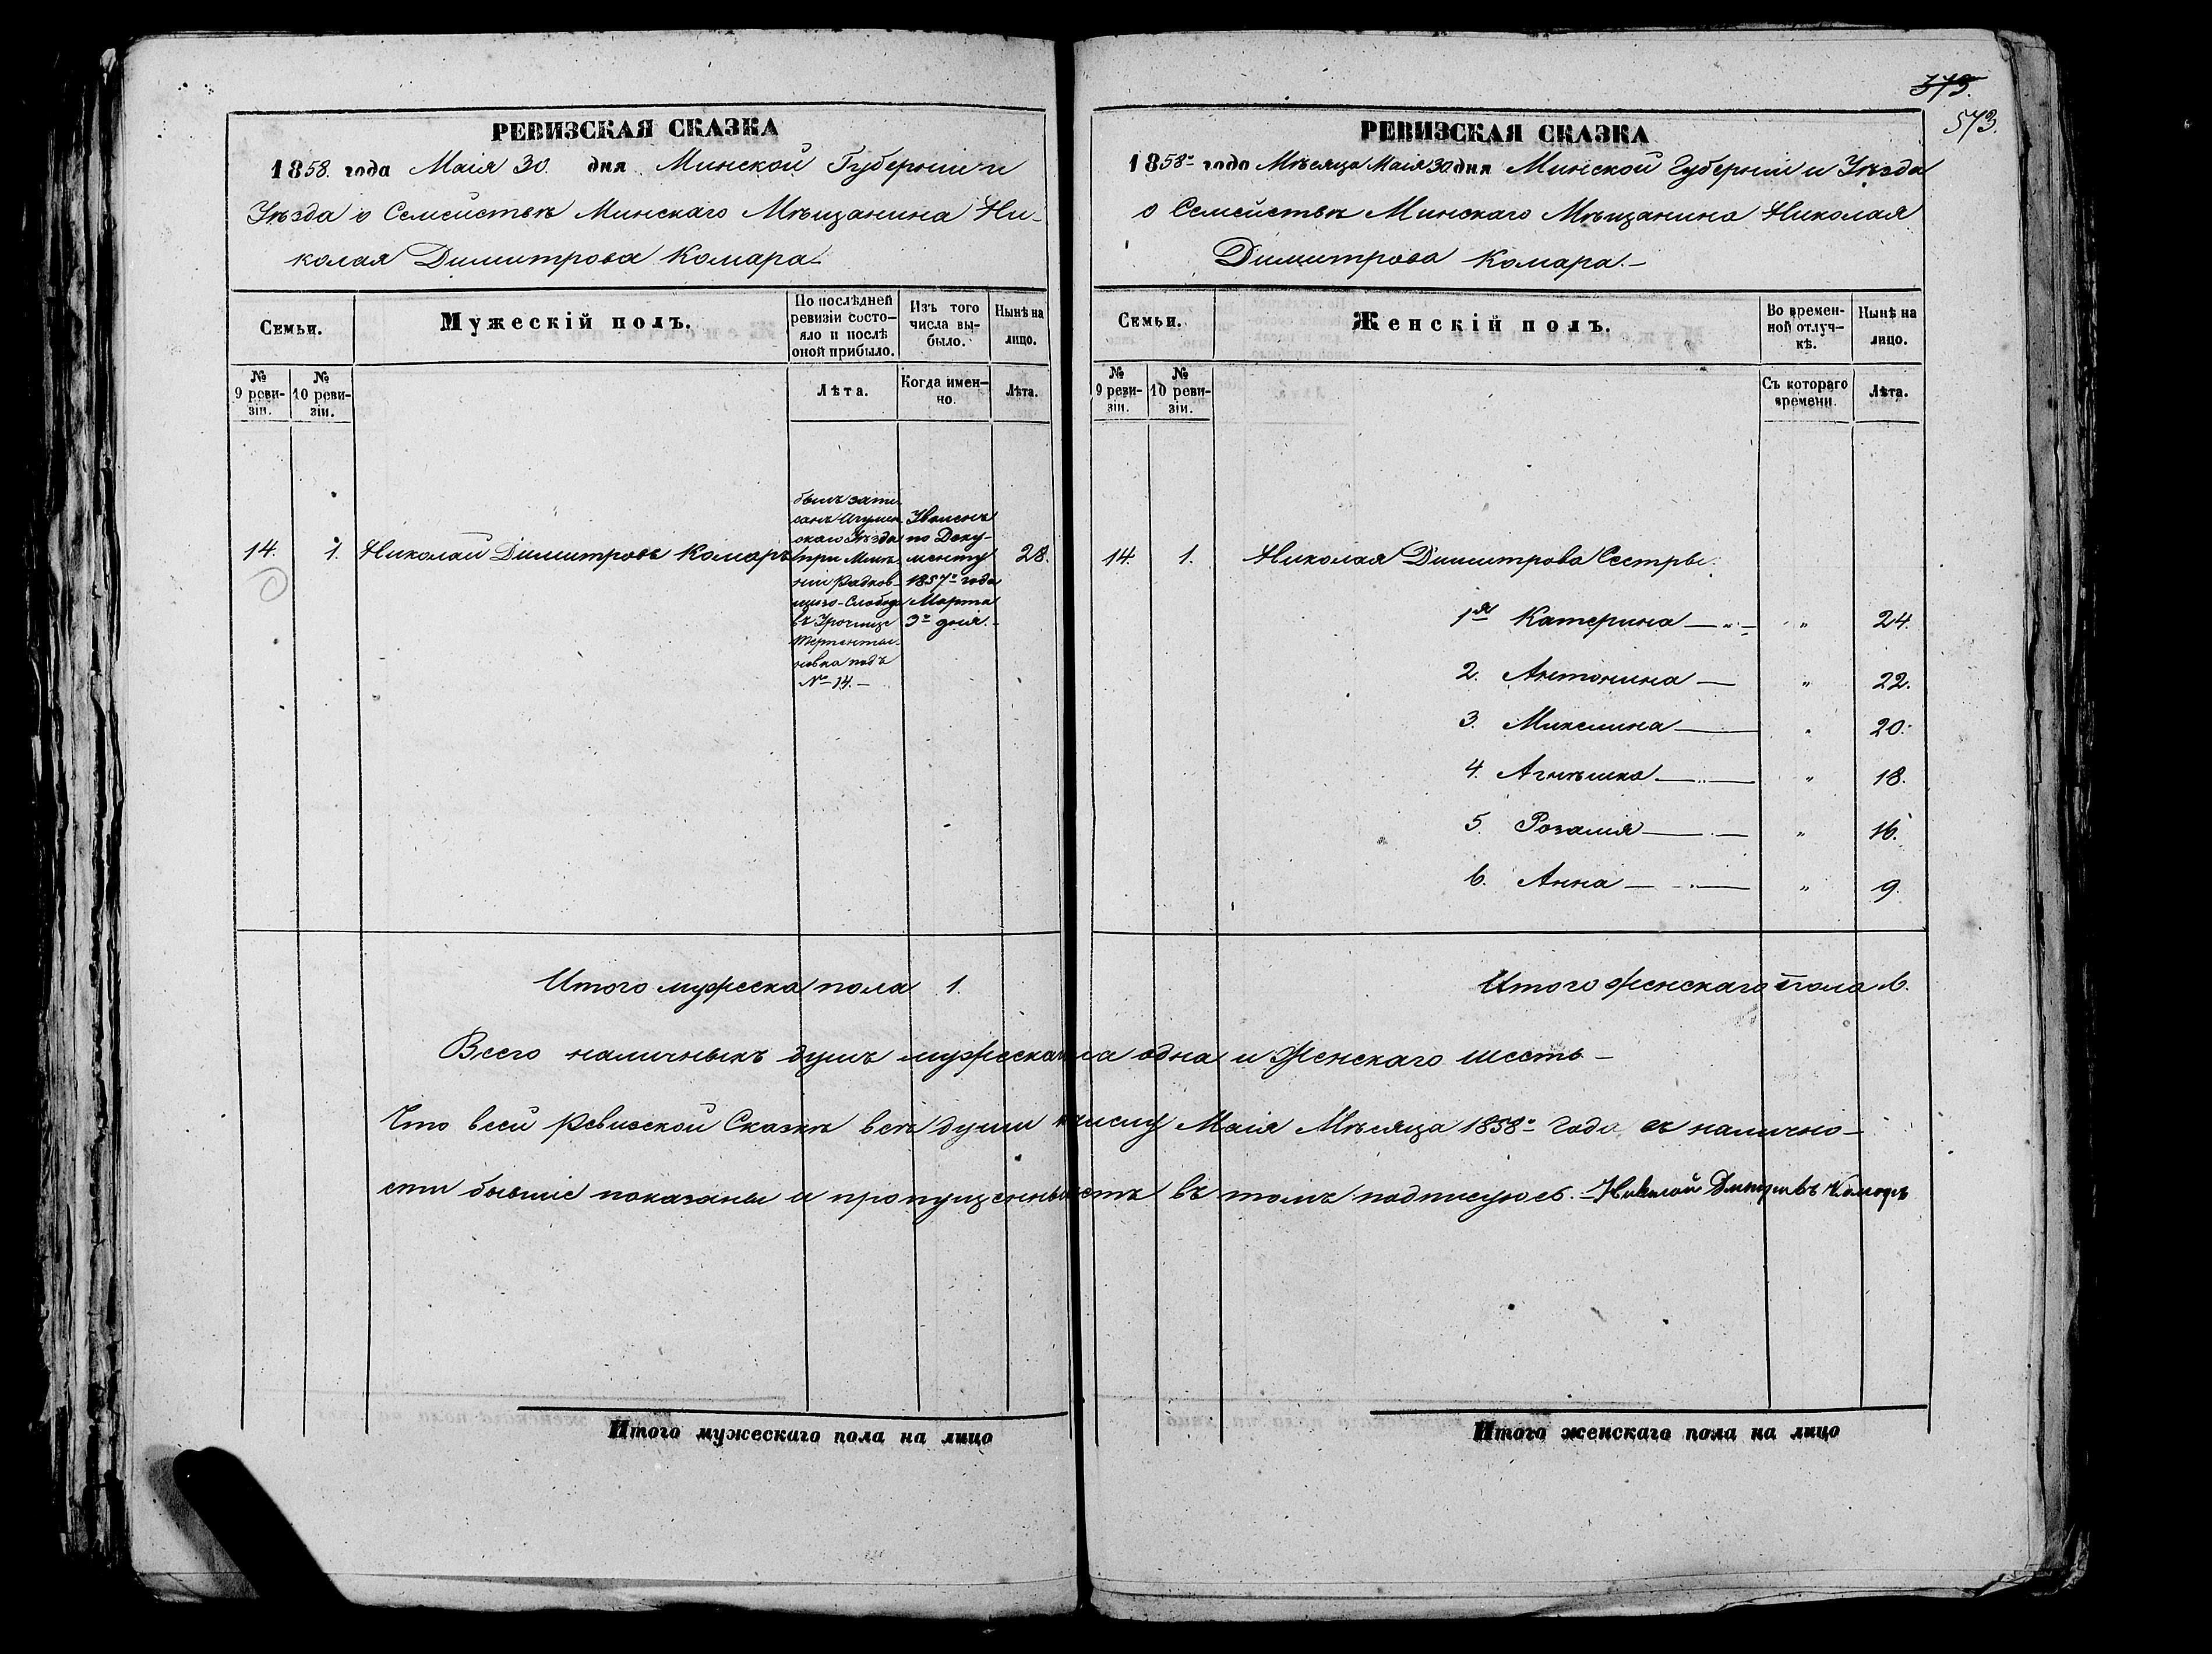 РЕВИЗСКАЯ СКАЗКА
1858. года Маія 30. дня Минской Губерніи и
Уѣзда о Семействѣ Минскаго Мѣщанина Ни-
колая Димитрова Комара
Семьи.
Мужескій полъ.
По послѣдней
ревизіи состо-
яло и послѣ
оной прибыло.
Изъ того
числа вы-
было.
Нынѣ на
лицо.
№
9 реви-
зіи.
№
10 реви-
зіи.
Лѣта.
Когда имен-
но.
Лѣта.
14. 1. Николай Димитровъ Комаръ
былъ запи
санъ Игумен
скаго Уѣзда
при Имѣ
ніи
Слобода
въ Урочищѣ
подъ
№ 14.–
Уволенъ
по Доку-
менту
1857го года
Марта
3го дня.–
28.
Итого мужеска пола 1.
Итого мужескаго пола на лицо
375.
573.
РЕВИЗСКАЯ СКАЗКА
1858го года Мѣсяца Маія 30 дня Минской Губерніи и Уѣзда
о Семействѣ Минскаго Мѣщанина Николая
Димитрова Комара.–
Семьи.
Женскій полъ.
Во времен-
ной отлуч-
кѣ.
Нынѣ на
лицо.
№
9 реви-
зіи.
№
10 реви-
зіи.
Съ котораго
времени.
Лѣта.
14. 1. Николая Димитрова Сестры:
1я Катерина — „ — „ 24.
2. Антонина — „ 22.
3. Михелина — „ 20.
4. Агнѣшка — „ 18.
5. Розалія — „ 16.
6. Анна — „ 9.
Итого женскаго пола 6.
Всего наличныхъ душъ мужеска одна и женскаго шесть –
Что всей ревизской Сказкѣ всѣ души числу Маія Мѣсяца 1858го Года въ налично-
сти бывшіе показаны и пропущенныхъ въ томъ подписуюсь. – Николай Дмитріевъ Комаръ
Итого женскаго пола на лицо